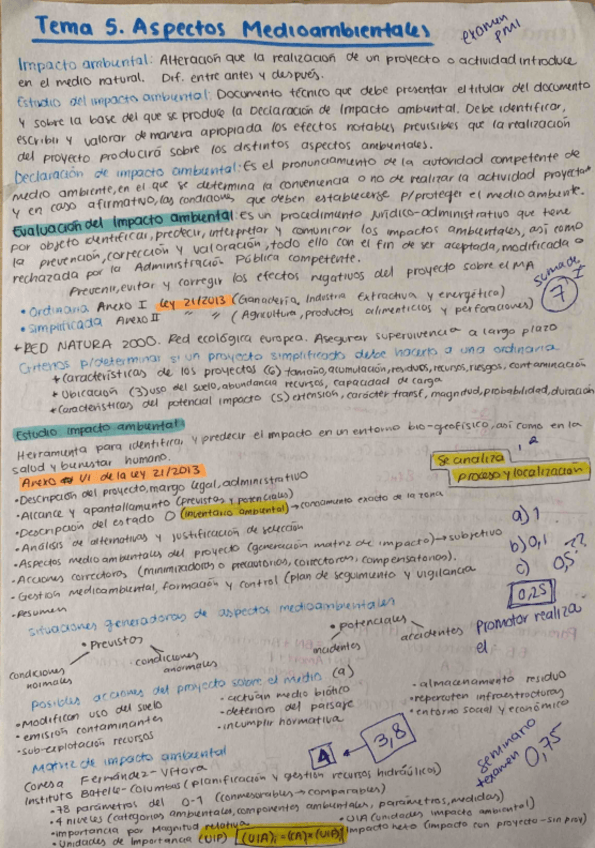 Tema 5. Aspectos Medioambientales
examen PMI
Impacto ambiental: Alteración que la realización de un proyecto o actividad introduce
en el medio natural. Dif. entre antes y después.
Estudio del impacto ambiental: Documento técnico que debe presentar el titular del documento
y sobre la base del que se produce la Declaración de Impacto ambiental. Debe identificar,
escribir y valorar de manera apropiada los efectos notables previsibles que la realización
del proyecto producirá sobre los distintos aspectos ambientales.
Declaración de impacto ambiental: Es el pronunciamiento de la autoridad competente de
medio ambiente, en el que se determina la conveniencia o no de realizar la actividad proyectada
y en caso afirmativo, las condiciones, que deben establecerse p/proteger el medio ambiente.
Evaluación del Impacto ambiental: es un procedimiento jurídico-administrativo que tiene
por objeto identificar, predecir, interpretar y comunicar los impactos ambientales, así como
la prevención, corrección y valoración, todo ello con el fin de ser aceptada, modificada o
rechazada por la Administración Pública competente.
Prevenir, evitar y corregir los efectos negativos del proyecto sobre el MA
• Ordinaria Anexo I Ley 21/2013 (Ganadería, Industria Extractiva y energética)
• Simplificada Anexo II " " (Agricultura, productos alimenticios y perforaciones)
suma de I
7
+ RED NATURA 2000. Red ecológica europea. Asegurar supervivencia a largo plazo
Criterios p/determinar si un proyecto simplificado debe hacerlo a una ordinaria
+ Características de los proyectos (6) tamaño, acumulación, residuos, recursos, riesgos, contaminación
+ Ubicación (3) uso del suelo, abundancia recursos, capacidad de carga
+ Características del potencial impacto (5) extensión, carácter transf, magnitud, probabilidad, duración
Estudio impacto ambiental:
Herramienta para identificar y predecir el impacto en un entorno bio-geofísico, así como en la
salud y bienestar humano.
1 2
Se analiza
proceso y localización
Anexo VI de la ley 21/2013
• Descripción del proyecto, margo legal, administrativo
• Alcance y apantallamiento (previstos y potenciales)
• Descripción del estado 0 (inventario ambiental) → conocimiento exacto de la zona
• Análisis de alternativas y justificación de selección
• Aspectos medioambientales del proyecto (generación matriz de impacto) → subjetivo
• Acciones correctoras (minimizadoras o precautorias, correctoras, compensatorias).
• Gestión medioambiental, formación y control (plan de seguimiento y vigilancia
• Resumen
a) 1
b) 0,1 ??
c) 0,5
0,25
Promotor realiza
el
Situaciones generadoras de aspectos medioambientales
• Previstos
condiciones normales
condiciones anormales
• potenciales
incidentes
accidentes
Posibles acciones del proyecto sobre el medio (a)
• Modifican uso del suelo
• emisión contaminantes
• sub-explotación recursos
• actúan medio biótico
• deterioro del paisaje
• incumplir normativa
• almacenamiento residuo
• repercuten infraestructuras
• entorno social y económico
Matriz de impacto ambiental
4 ← 3,8
seminario
+ examen 0,75
Conesa Fernández-Vítora
Instituto Batelle-Columbus (planificación y gestión recursos hidráulicos)
• 78 parámetros del 0-1 (conmesurables → comparables)
• 4 niveles (categorías ambientales, componentes ambientales, parámetros, medidas)
• importancia por Magnitud relativa
• UIA (unidades impacto ambiental)
• Unidades de Importancia (UIP) (UIA)i = (CA)i x (UIP)i Impacto neto (impacto con proyecto - sin proy)